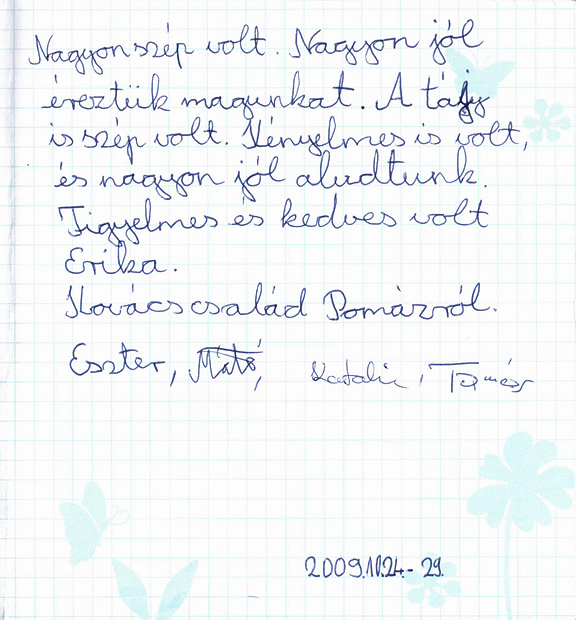 Nagyon szép volt. Nagyon jól
éreztük magunkat. A táj
is szép volt. Kényelmes is volt,
és nagyon jól aludtunk.
Figyelmes és kedves volt
Erika.
Kovács család Pomázról.
Eszter, Máté, Katalin, Tamás
2009.10.24.-29.